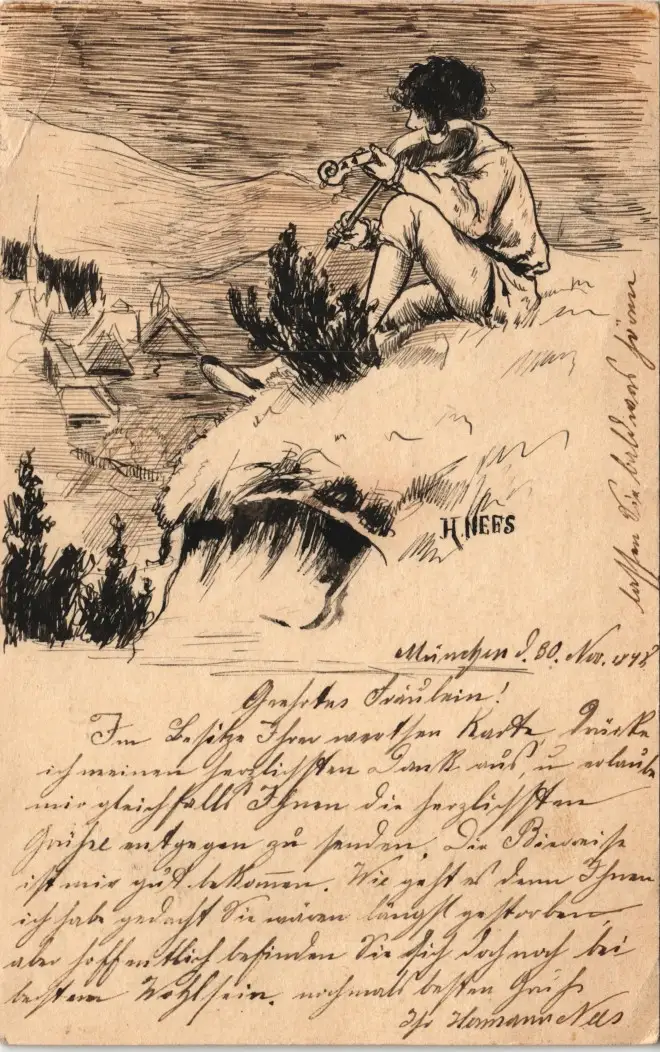 H. NEES
München d. 30. Nov. 1898
Geehrtes Fräulein!
Im Besitze Ihrer werthen Karte, drücke
ich meinen herzlichsten Dank aus, u erlaube
mir gleichfalls Ihnen die herzlichsten
Grüße entgegen zu senden. Die
ist mir gut bekommen. Wie geht es denn Ihnen
ich habe gedacht Sie wären längst gestorben,
aber hoffentlich befinden Sie sich doch noch bei
bestem Wohlsein. nochmals besten Gruß
Ihr Hermann Nees
lassen Sie bald was hören